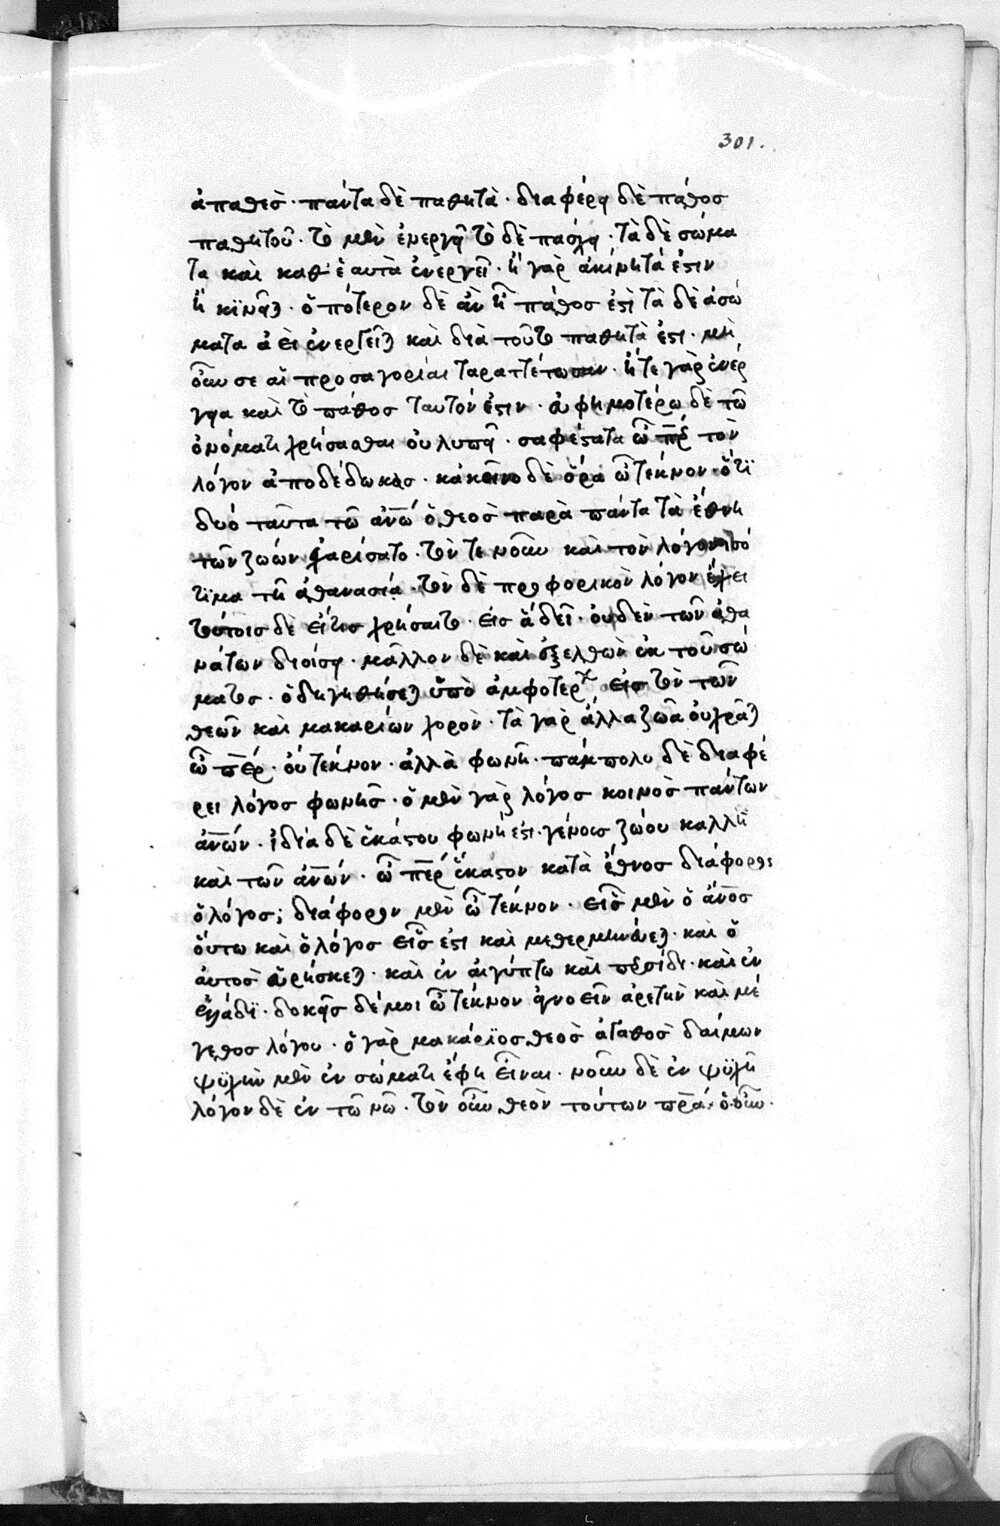 301.
ἀπαθὲς· πάντα δὲ παθητὰ· διαφέρει δὲ πάθος
παθητοῦ· τὸ μὲν ἐνεργεῖ τὸ δὲ πάσχει· τὰ δὲ σώμα
τα καὶ καθ' ἑαυτὰ ἐνεργεῖ· ἢ γὰρ ἀκίνητά ἐστιν
ἢ κινεῖται· ὁπότερον δὲ ἂν ᾖ πάθος ἐστὶ τὰ δὲ ἀσώ
ματα ἀεὶ ἐνεργεῖται καὶ διὰ τοῦτο παθητὰ ἐστι· μὴ
οὖν σε αἱ προσαγορίαι ταραττέτωσαν· ἥ τε γὰρ ἐνέρ
γεια καὶ τὸ πάθος ταυτόν ἐστιν· εὐφημοτέρω δὲ τῶ
ὀνόματι χρήσασθαι οὐ λυπεῖ· σαφέστατα ὦ περ τὸν
λόγον ἀποδέδωκας· κἀκεῖνο δὲ ὅρα ὦ τέκνον· ὅτι
δυὸ ταῦτα τῶ ἀνῶ ὁ θεὸς παρὰ πάντα τὰ ἔθνη
τῶν ζώων ἐχαρίσατο· τόν τε νοῦν καὶ τὸν λόγον ἰσό
τιμα τῆ ἀθανασία· τὸν δὲ προφορικὸν λόγον ἔχει
τούτοις δὲ εἴ τις χρήσαιτο· εἰς ἃ δεῖ· οὐδὲν τῶν ἀθα
νάτων διοίσει· μᾶλλον δὲ καὶ ἐξελθὼν ἐκ τοῦ σώ
ματος· ὁδηγηθήσεται ὑπὸ ἀμφοτέρων εἰς τὸν τῶν
θεῶν καὶ μακαρίων χορὸν· τὰ γὰρ ἄλλα ζῶα οὐ χρᾶται
ὦ περ· οὐ τέκνον· ἀλλὰ φωνῆ· πάμπολυ δὲ διαφέ
ρει λόγος φωνῆς· ὁ μὲν γὰρ λόγος κοινὸς πάντων
ἀνων· ἰδία δὲ ἑκάστου φωνή ἐστι· γένους ζώου καλλὴ
καὶ τῶν ἀνων· ὦ περ ἕκαστον κατὰ ἔθνος διάφορος
ὁ λόγος; διάφορον μὲν ὦ τέκνον· εἷς μὲν ὁ ἄνος
οὕτω καὶ ὁ λόγος εἷς ἐστι καὶ μεθερμηνεύεται· καὶ ὁ
αὐτὸς εὑρήσκεται· καὶ ἐν αἰγύπτω καὶ περσίδι· καὶ ἐν
ἑλλάδι· δοκεῖς δέ μοι ὦ τέκνον ἀγνοεῖν ἀρετὴν καὶ μέ
γεθος λόγου· ὁ γὰρ μακάριος θεὸς ἀγαθὸς δαίμων
ψυχὴν μὲν ἐν σώματι ἔφη εἶναι· νοῦν δὲ ἐν ψυχῆ
λόγον δὲ ἐν τῶ νῶ· τὸν οὖν θεὸν τούτων πρα· ὁ οὖν·